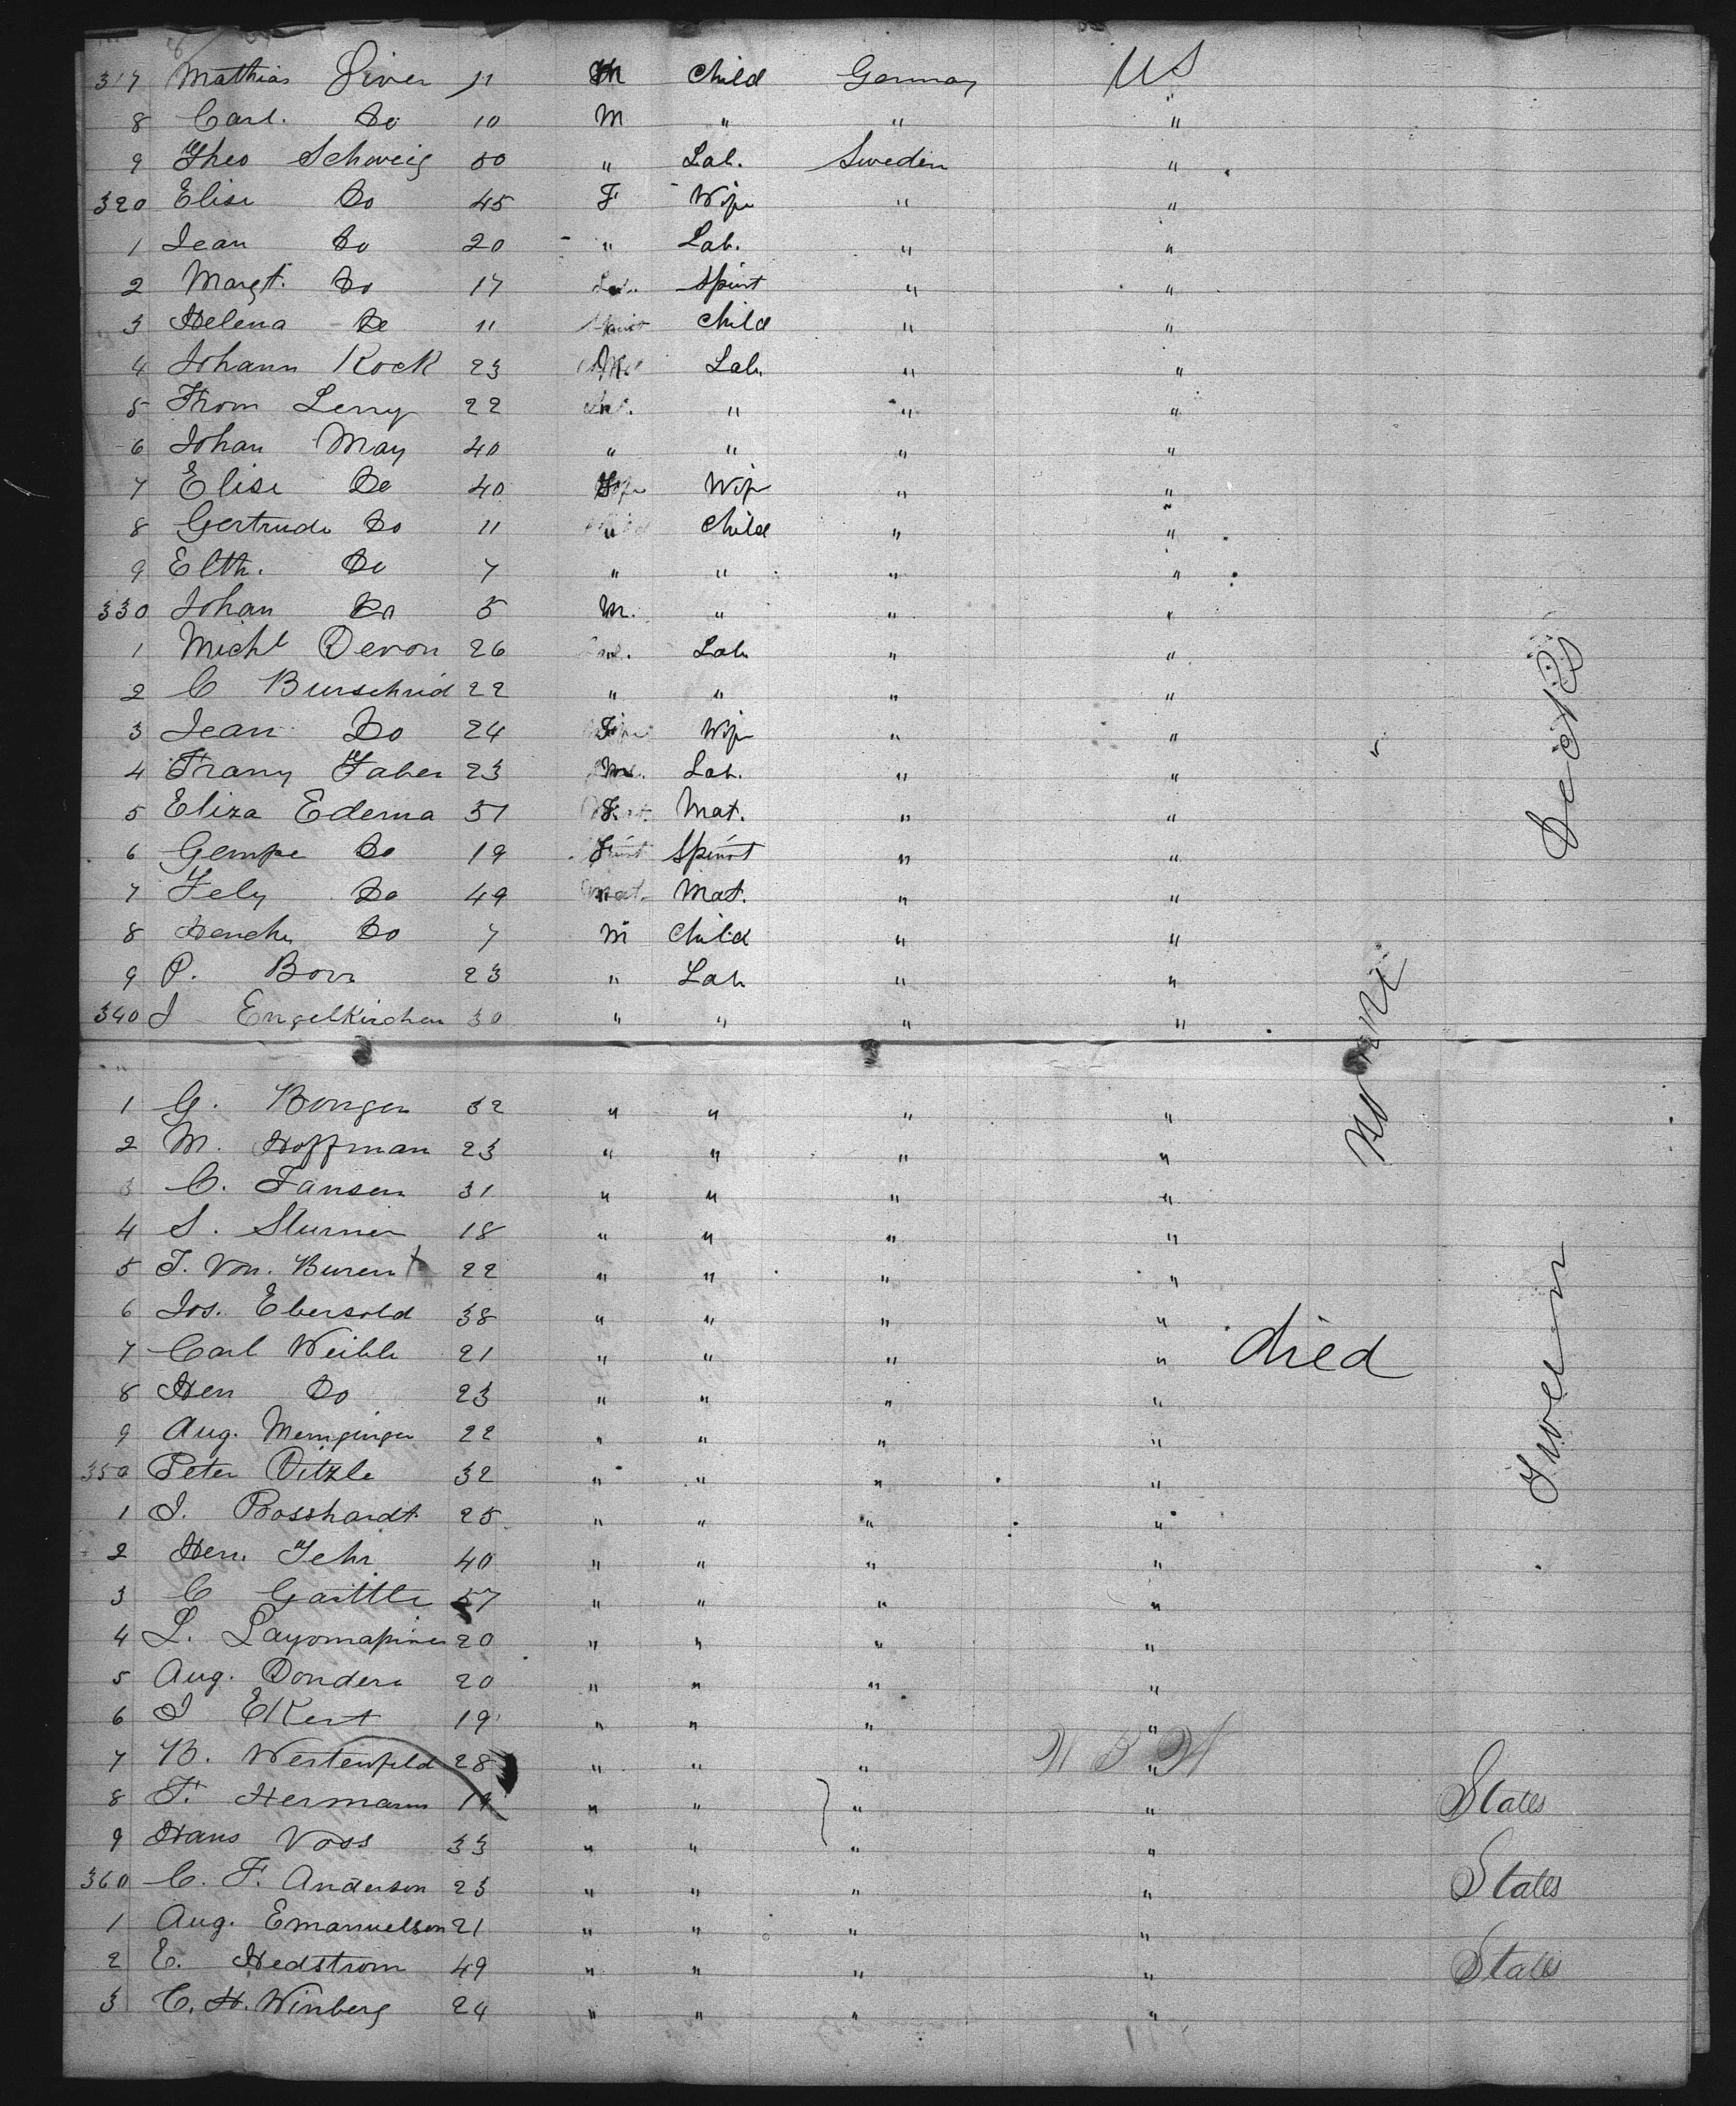 317 Mathias Siver 11 M Child Germany US
8 Carl. Do 10 M " " "
9 Theo Schweig 50 " Lab. Sweden "
320 Elise Do 45 F Wife " "
1 Jean Do 20 " Lab. " "
2 Margt. Do 17 Spinst " "
3 Helena Do 11 Child " "
4 Johann Rock 23 M Lab. " "
5 From Lerry 22 " " "
6 Johan May 40 " " " "
7 Elise Do 40 F Wife " "
8 Gertrude Do 11 " Child " "
9 Elth. Do 7 " " " "
330 Johan Do 5 M. " " "
1 Michl Devon 26 Lab " "
2 C Burscheid 22 " " " "
3 Jean Do 24 F Wife " "
4 Frany Faber 23 M. Lab. " "
5 Eliza Edema 51 F. Mat. " "
6 Gempe Do 19 F Spinst " "
7 Fely Do 49 " Mat. " "
8 Hench Do 7 M Child " "
9 P. Born 23 " Lab " "
340 J Engelkirchen 30 " " " "
1 G. Bongen 32 " " " "
2 M. Hoffman 23 " " " "
3 C. Fansen 31 " " " "
4 S. Sturner 18 " " " "
5 J. Von. Buren 22 " " " "
6 Jos. Ebersold 38 " " " "
7 Carl Weible 21 " " " "
8 Hen Do 23 " " " "
9 Aug. Memginger 22 " " " "
350 Peter Ditzle 32 " " " "
1 J. Bosshardt 25 " " " "
2 Hen. Fehr 40 " " " "
3 C Gaittle 57 " " " "
4 L. 20 " " " "
5 Aug. Donders 20 " " " "
6 J EKert 19 " " " "
7 B. Westenfeld 28 " " " "
8 F. Hermann 19 " " " " States
9 Hans Voss 33 " " " "
360 C. F. Anderson 23 " " " " States
1 Aug. Emanuelson 21 " " " "
2 E. Hedstrom 49 " " " " States
3 C. H. Winberg 24 " " " "
died
None